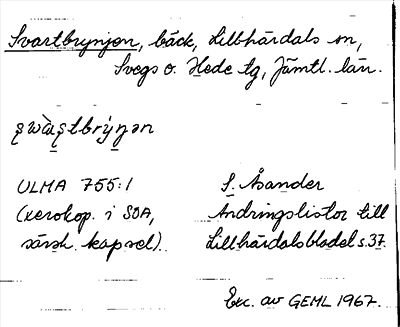 Svartbrynjen, bäck, Lillhärdals sn,
Svegs o. Hede tg, Jämtl. län.
ULMA 755:1
(xerokop. i SOA,
särsk. kapsel).
S. Åsander
Ändringslistor till
Lillhärdalsbladet s. 37.
Exc. av GEML 1967.